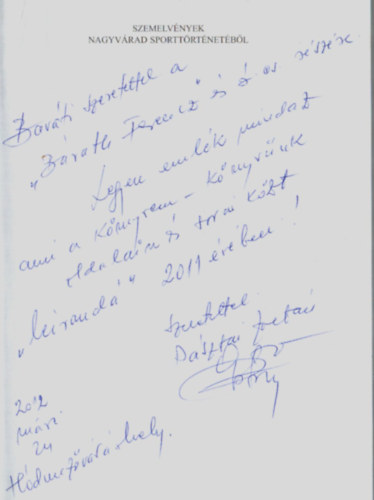 SZEMELVÉNYEK
NAGYVÁRAD SPORTTÖRTÉNETÉBŐL
Baráti szeretettel a
"Baráth Ferenc" és részére
Legyen emlék mindaz
ami a könyvem - könyvünk
oldalain és sorai közt
"kirandá" 2011 évében!
Szeretettel
Dásztai Zoltán
2012
márc.
24
Hódmezővásárhely.